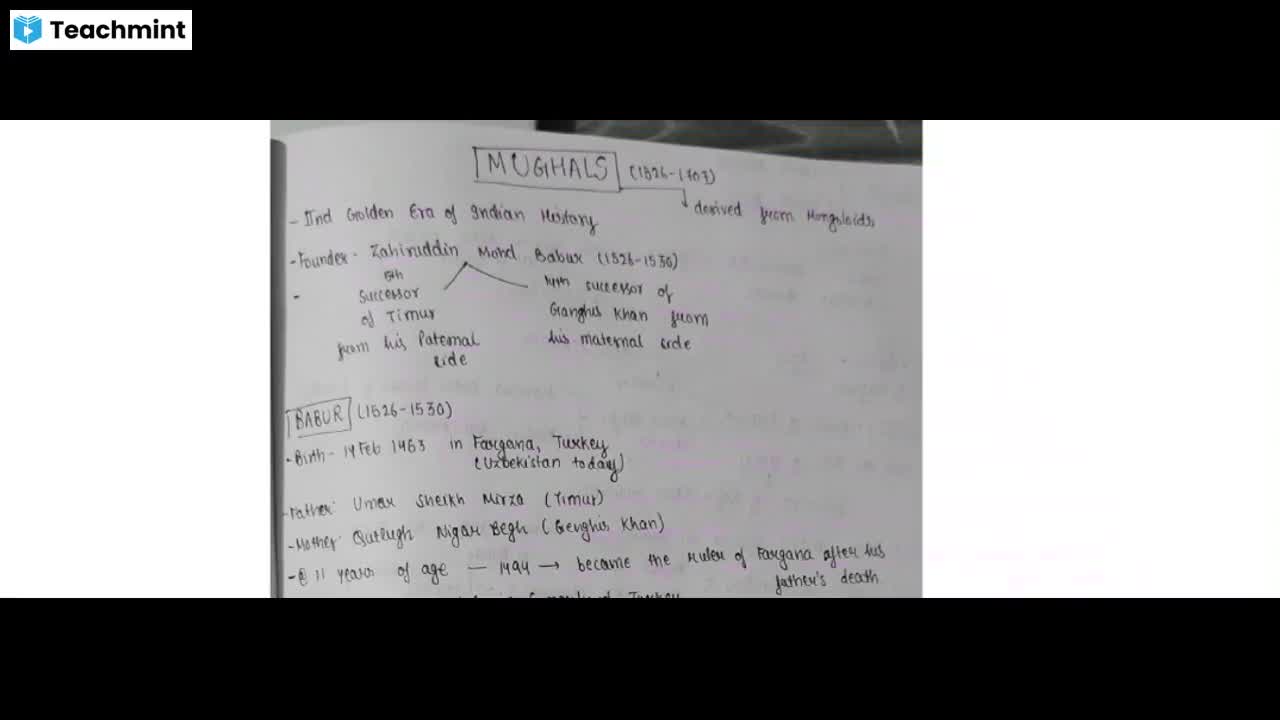 Teachmint
MUGHALS (1526-1707)
derived from Mongoloids
- IInd Golden Era of Indian History
- Founder - Zahiruddin Mohd Babur (1526-1530)
- 5th successor of Timur from his Paternal side
14th successor of Ganghis Khan from his maternal side
BABUR (1526-1530)
- Birth - 14 Feb 1463 in Fargana, Turkey
(Uzbekistan today)
- Father: Umar Sheikh Mirza (Timur)
- Mother Qutlugh Nigar Begh (Genghis Khan)
- @ 11 years of age — 1494 → became the ruler of Fargana after his
father's death